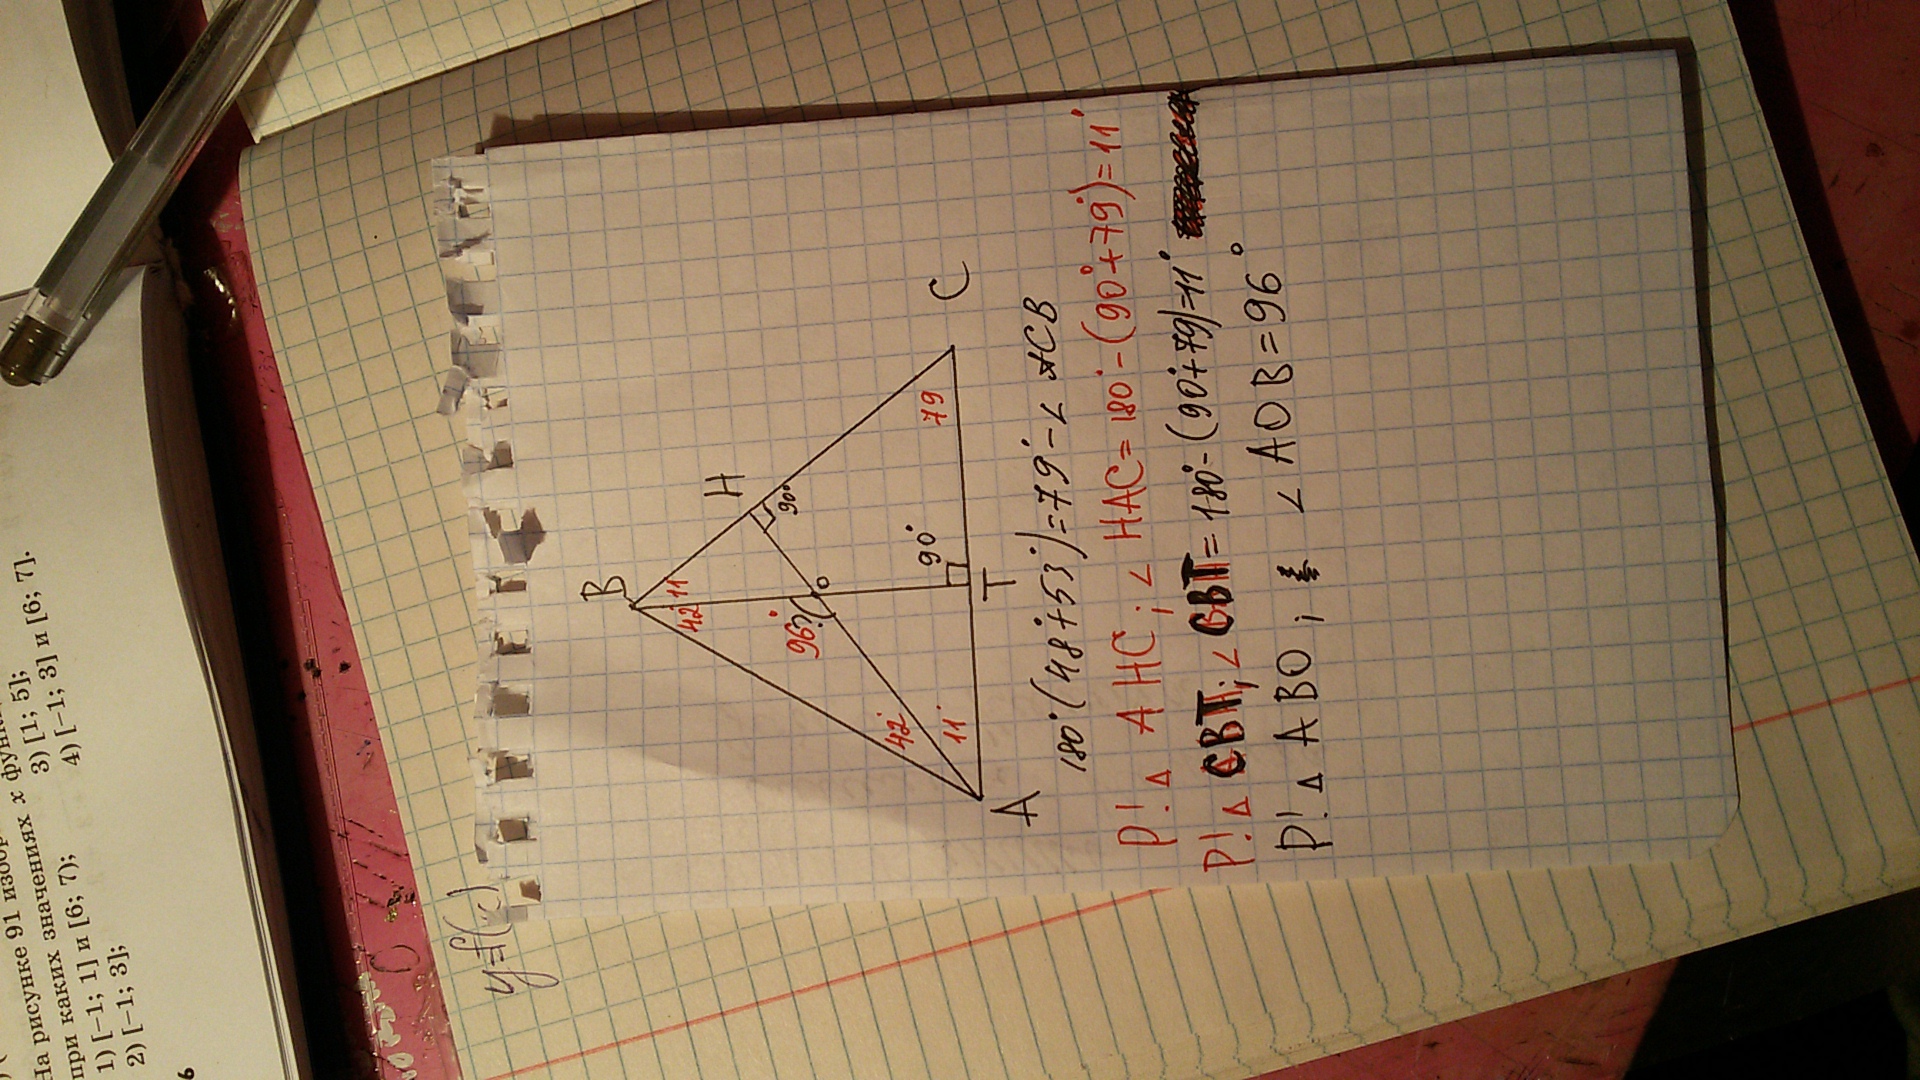 На рисунке 91 изобр
при каких значениях x функци
1) [−1; 1] и [6; 7);
3) [1; 5];
2) [−1; 3];
4) [−1; 3] и [6; 7].
6
y=f(x)
B
H
42 11
90°
96°
?
O
90°
79
C
42°
11°
A
T
180°(48°+53°)=79°-∠ ACB
P! △ AHC ; ∠ HAC=180°-(90°+79°)=11°
P! △ CBT; ∠ CBT=180°-(90°+79)=11°
P! △ ABO ; ∠ AOB=96°